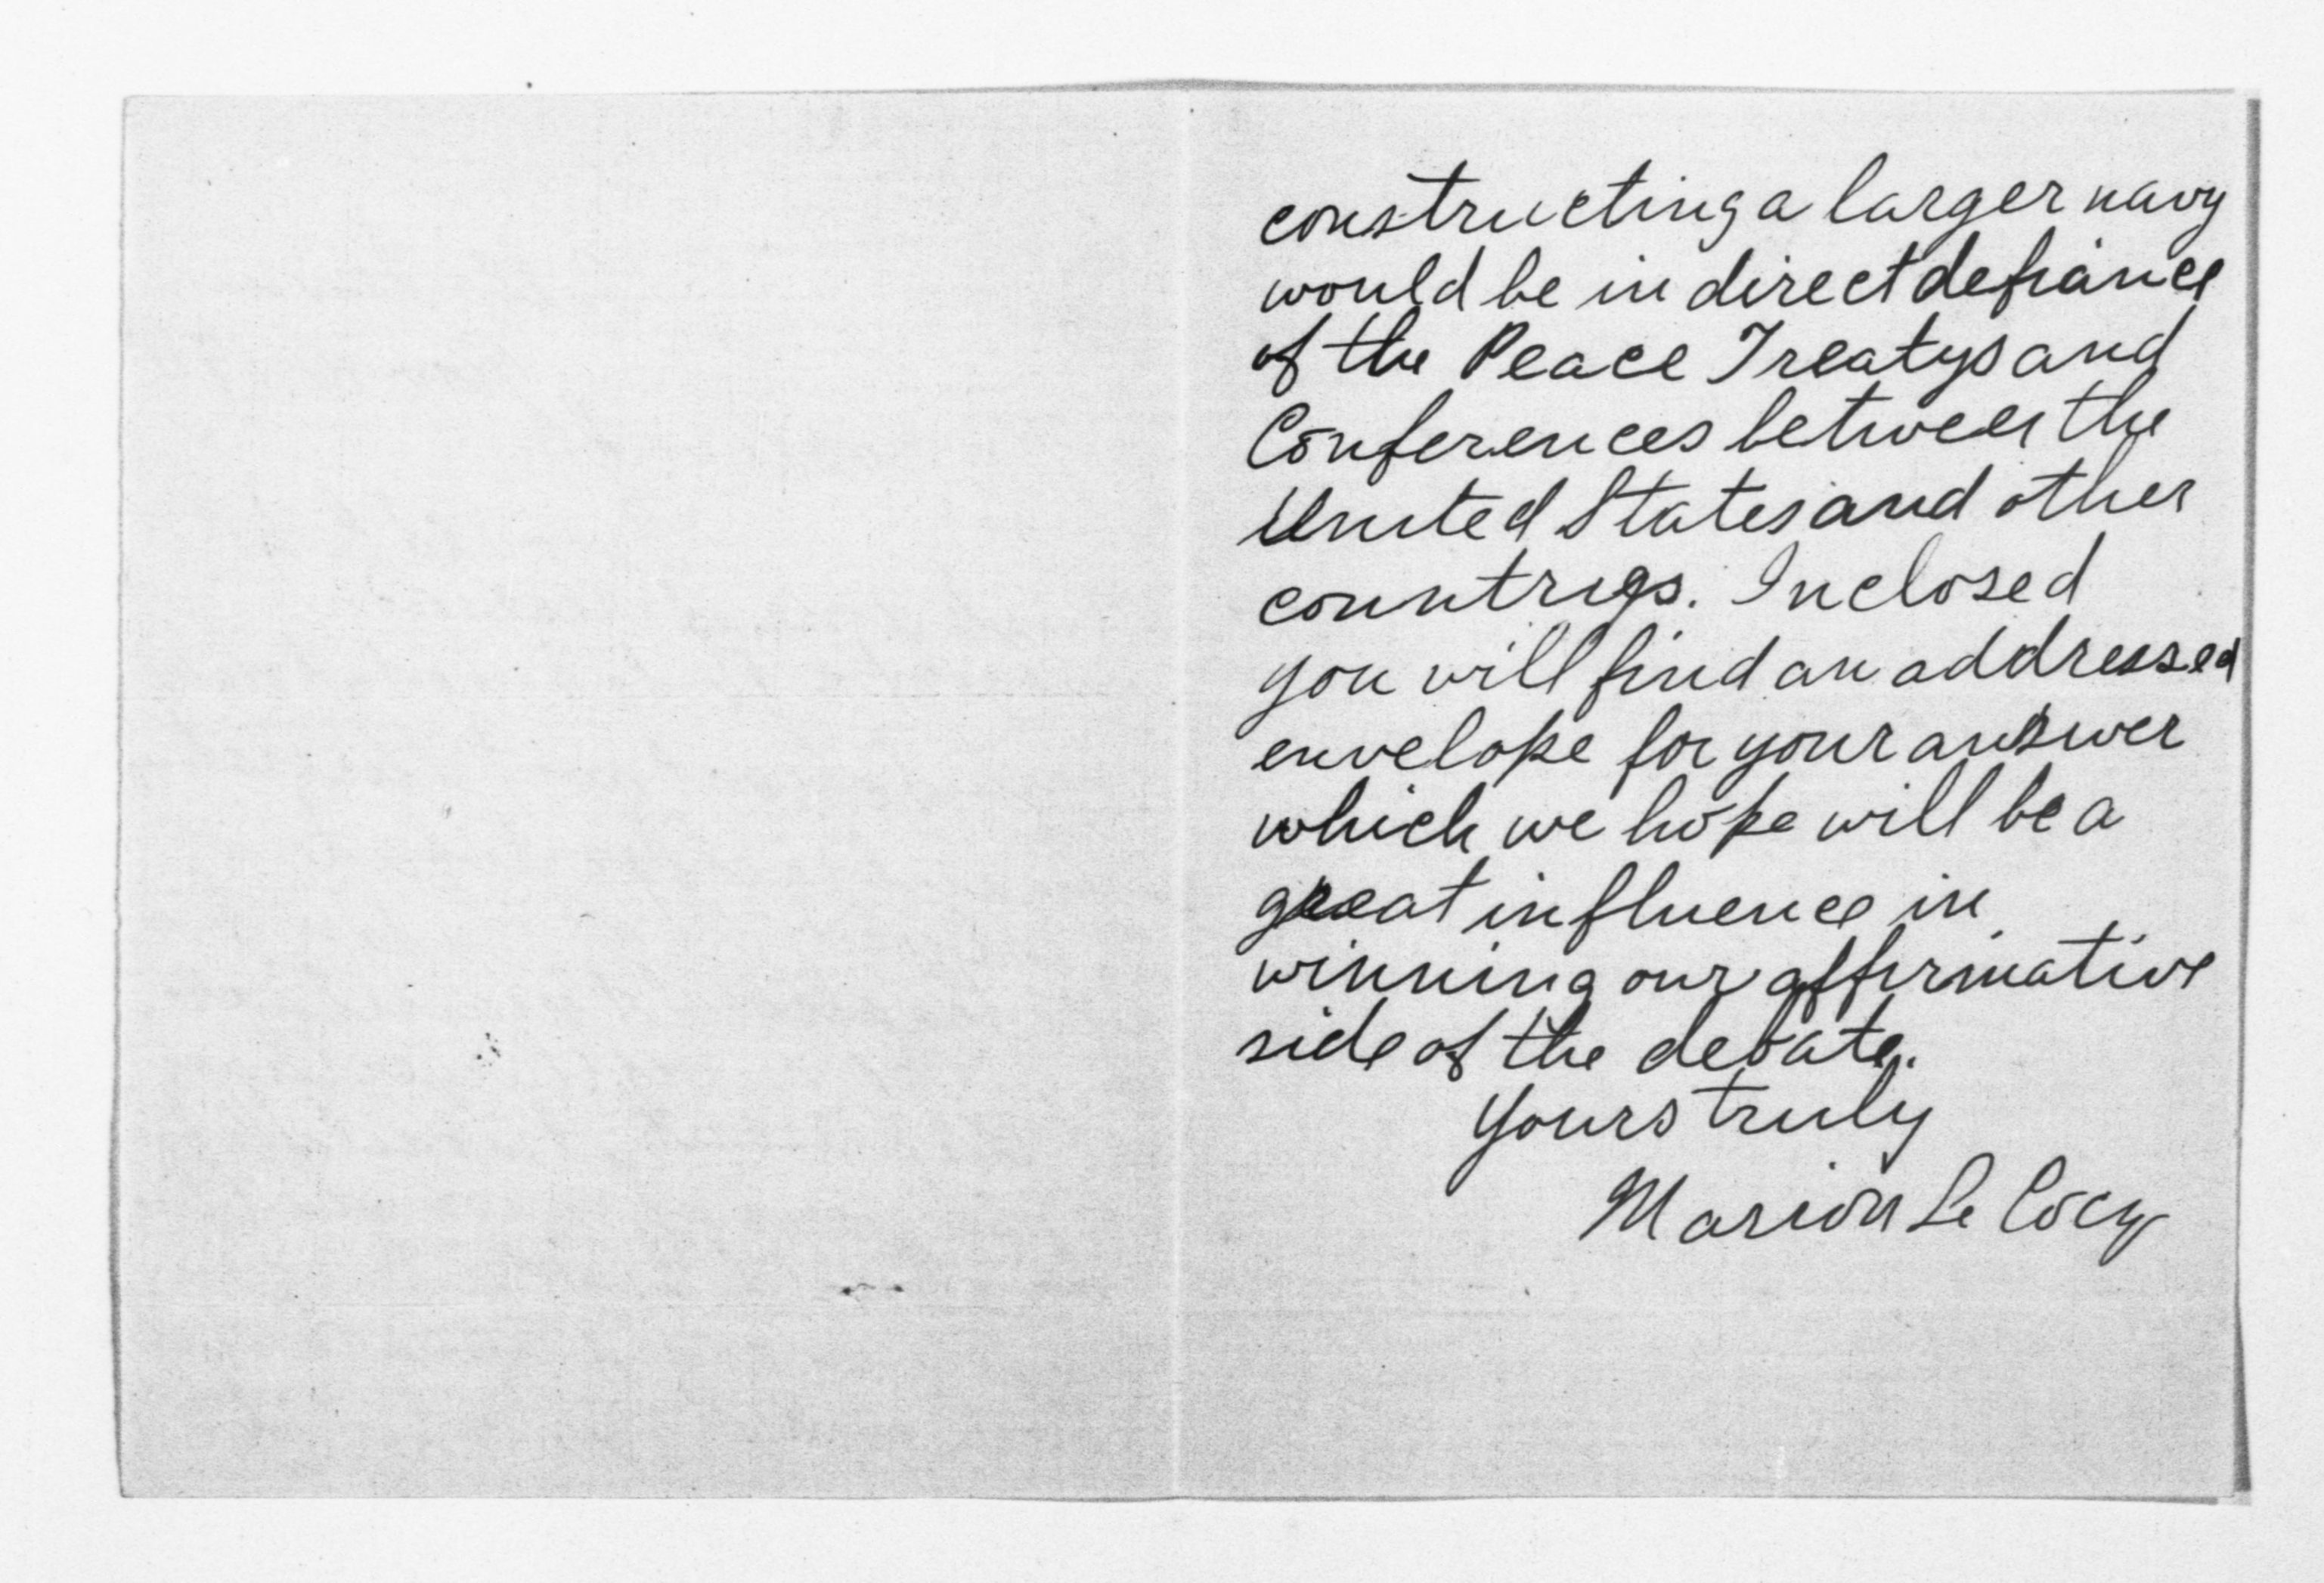 constructing a larger navy
would be in direct defiance
of the Peace Treatys and
Conferences between the
United States and other
countrys. Inclosed
you will find an addressed
envelope for your answer
which we hope will be a
great influence in
winning our affirmative
side of the debate.
Yours truly
Marion Le Cocq